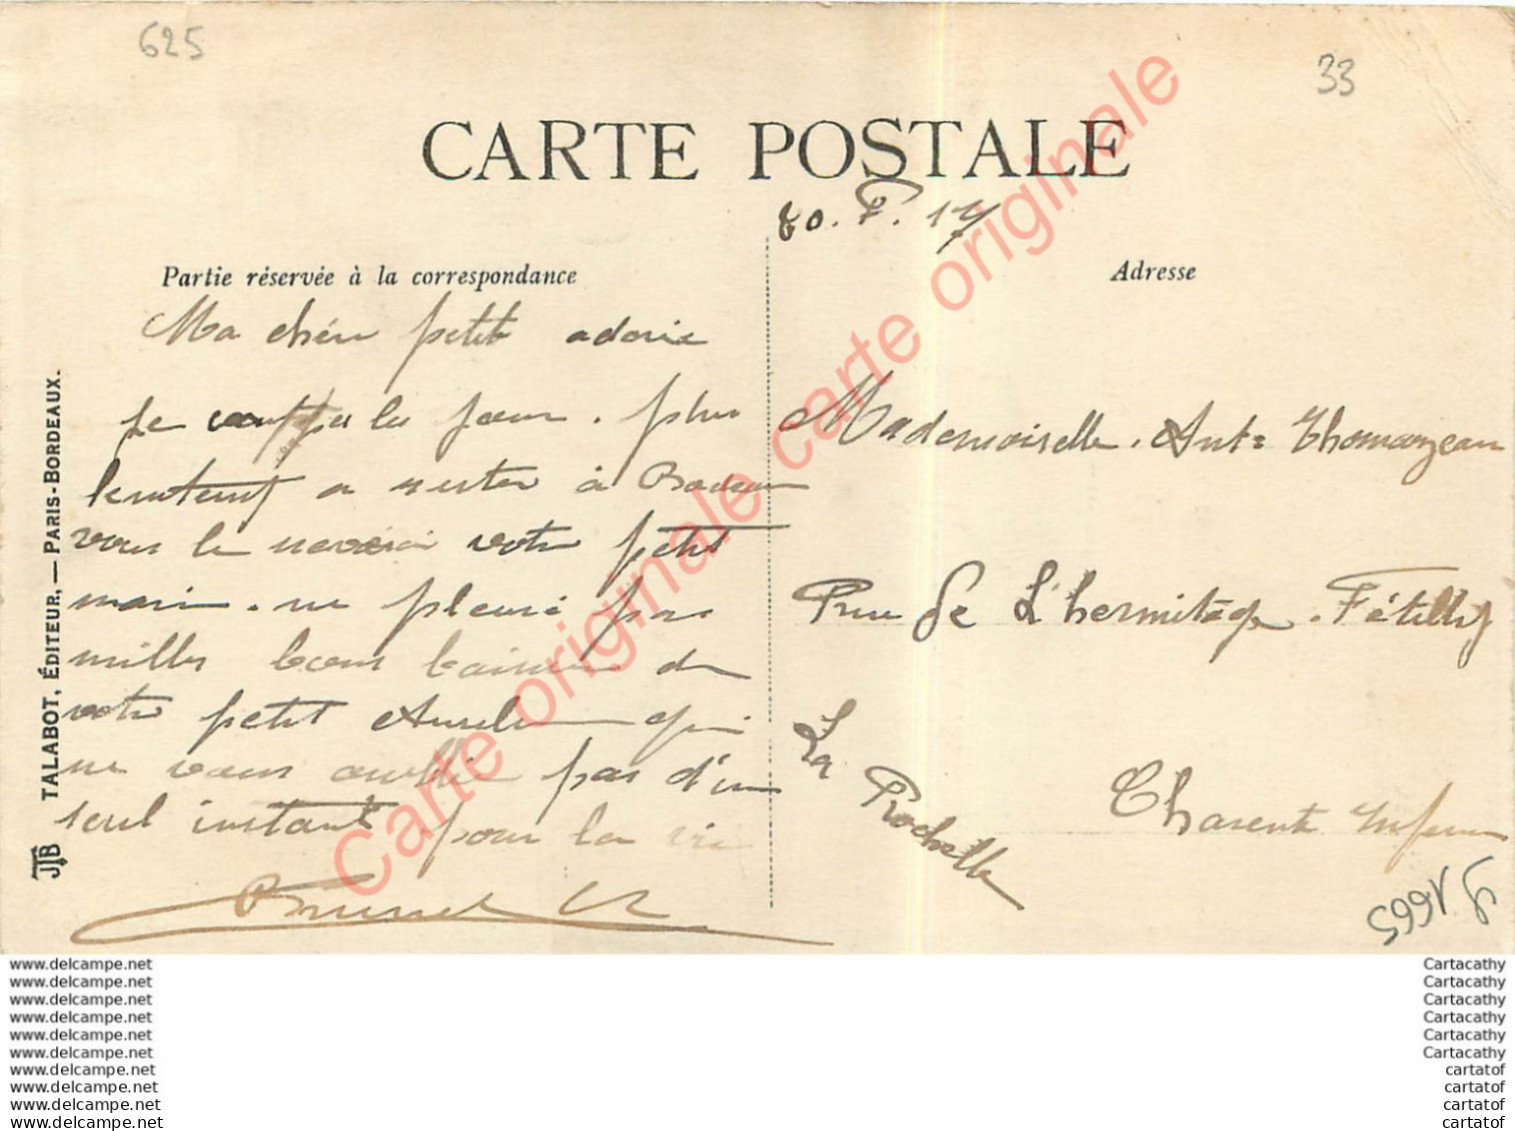 625
33
CARTE POSTALE
20. F. 17
Partie réservée à la correspondance
Adresse
Ma chéri petit adorie
Je les jour. plus
lentenf a rester à
vous le votre petit
mari. ne pleuré pas
milles bons baiser de
votre petit Aurele qui
ne vous oublie pas d'un
seul instant pour la vie
Brunet
Mademoiselle. Ant= Thomazeau
Rue de L'hermitage. Fétilly
La Rochelle
Charente Inferieu
J 1665
TALABOT, ÉDITEUR, — PARIS-BORDEAUX.
JTB
Carte originale carte originale
www.delcampe.net
www.delcampe.net
www.delcampe.net
www.delcampe.net
www.delcampe.net
www.delcampe.net
www.delcampe.net
www.delcampe.net
www.delcampe.net
www.delcampe.net
Cartacathy
Cartacathy
Cartacathy
Cartacathy
Cartacathy
Cartacathy
cartatof
cartatof
cartatof
cartatof